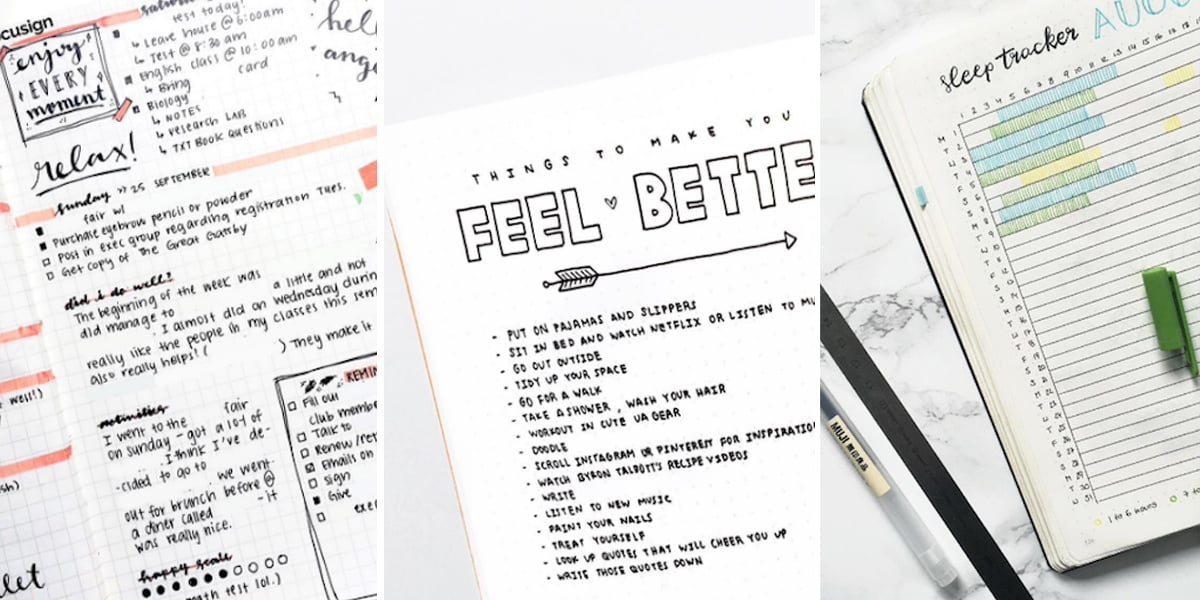 cusign
enjoy
EVERY
moment
relax!
test today!
↳ Leave house @ 6:00am
↳ Test @ 8:30 am
English class @ 10:00am
↳ Bring card
Biology
↳ NOTES
↳ research LAB
↳ TXT BOOK Questions
hel
ang
sunday >> 25 SEPTEMBER
fair w/
Purchase eyebrow pencil or powder
Post in exec group regarding registration Tues.
Get copy of The Great Gatsby
did i do well?
The beginning of the week was a little and not
did manage to . I almost did on wednesday durin
really like the people in my classes this sem
also really helps! ( ) They make it
well!)
activities
I went to the fair
on sunday - got a lot of
. I think I've de-
-cided to go to
. we went
out for brunch before @
a diner called - it
was really nice.
happy scale
ath test lol.)
REMIN
Fill out
club membe
Talk to
Renew /ret
Emails on
sign
Give
let
THINGS TO MAKE YOU
FEEL BETTE
- PUT ON PAJAMAS AND SLIPPERS
- SIT IN BED AND WATCH NETFLIX OR LISTEN TO MU
- GO OUT OUTSIDE
- TIDY UP YOUR SPACE
- GO FOR A WALK
- TAKE A SHOWER, WASH YOUR HAIR
- WORKOUT IN CUTE UA GEAR
- DOODLE
- SCROLL INSTAGRAM OR PINTEREST FOR INSPIRATIO
- WATCH BYRON TALBOTT'S RECIPE VIDEOS
- WRITE
- LISTEN TO NEW MUSIC
- PAINT YOUR NAILS
- TREAT YOURSELF
- LOOK UP QUOTES THAT WILL CHEER YOU UP
- WRITE THOSE QUOTES DOWN
sleep tracker AUGU
1 2 3 4 5 6 7 8 9 10 11 12 13 14 15 16 17 18
1 to 6 hours 7 to
MUJI